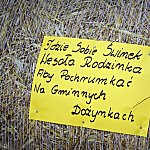 Idzie Sobie Świnek
Wesoła Rodzinka
Aby Pochrumkać
Na Gminnych
Dożynkach